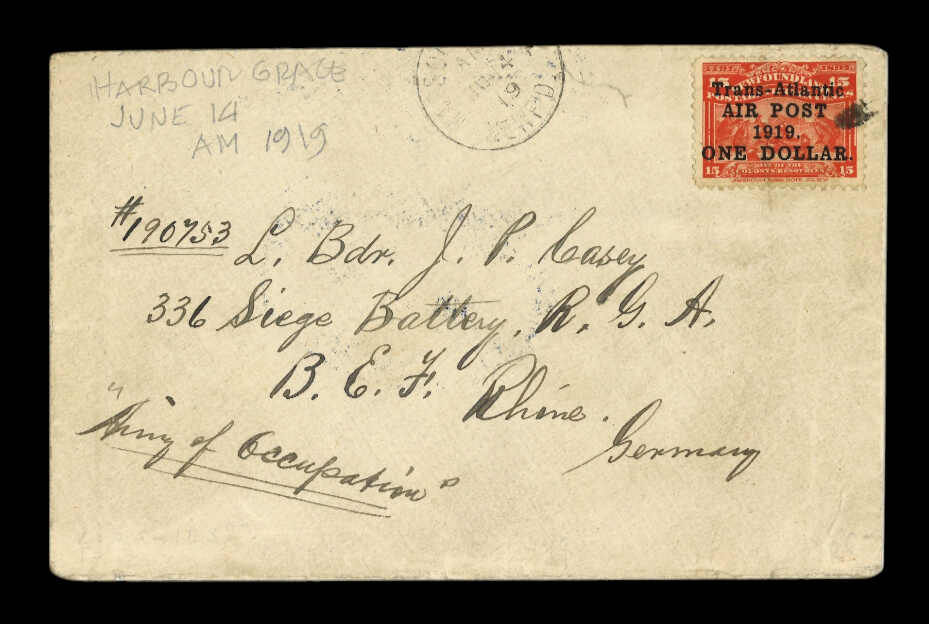 HARBOUR GRACE
JUNE 14
AM 1919
15 15
NEWFOUNDLAND
Trans-Atlantic
AIR POST
1919.
ONE DOLLAR.
15 COLONY'S RESOURCES 15
#190753
L. Bdr. J. P. Casey
336 Siege Battery. R. G. A.
B. E. F. Rhine.
Germany
"Army of Occupation"